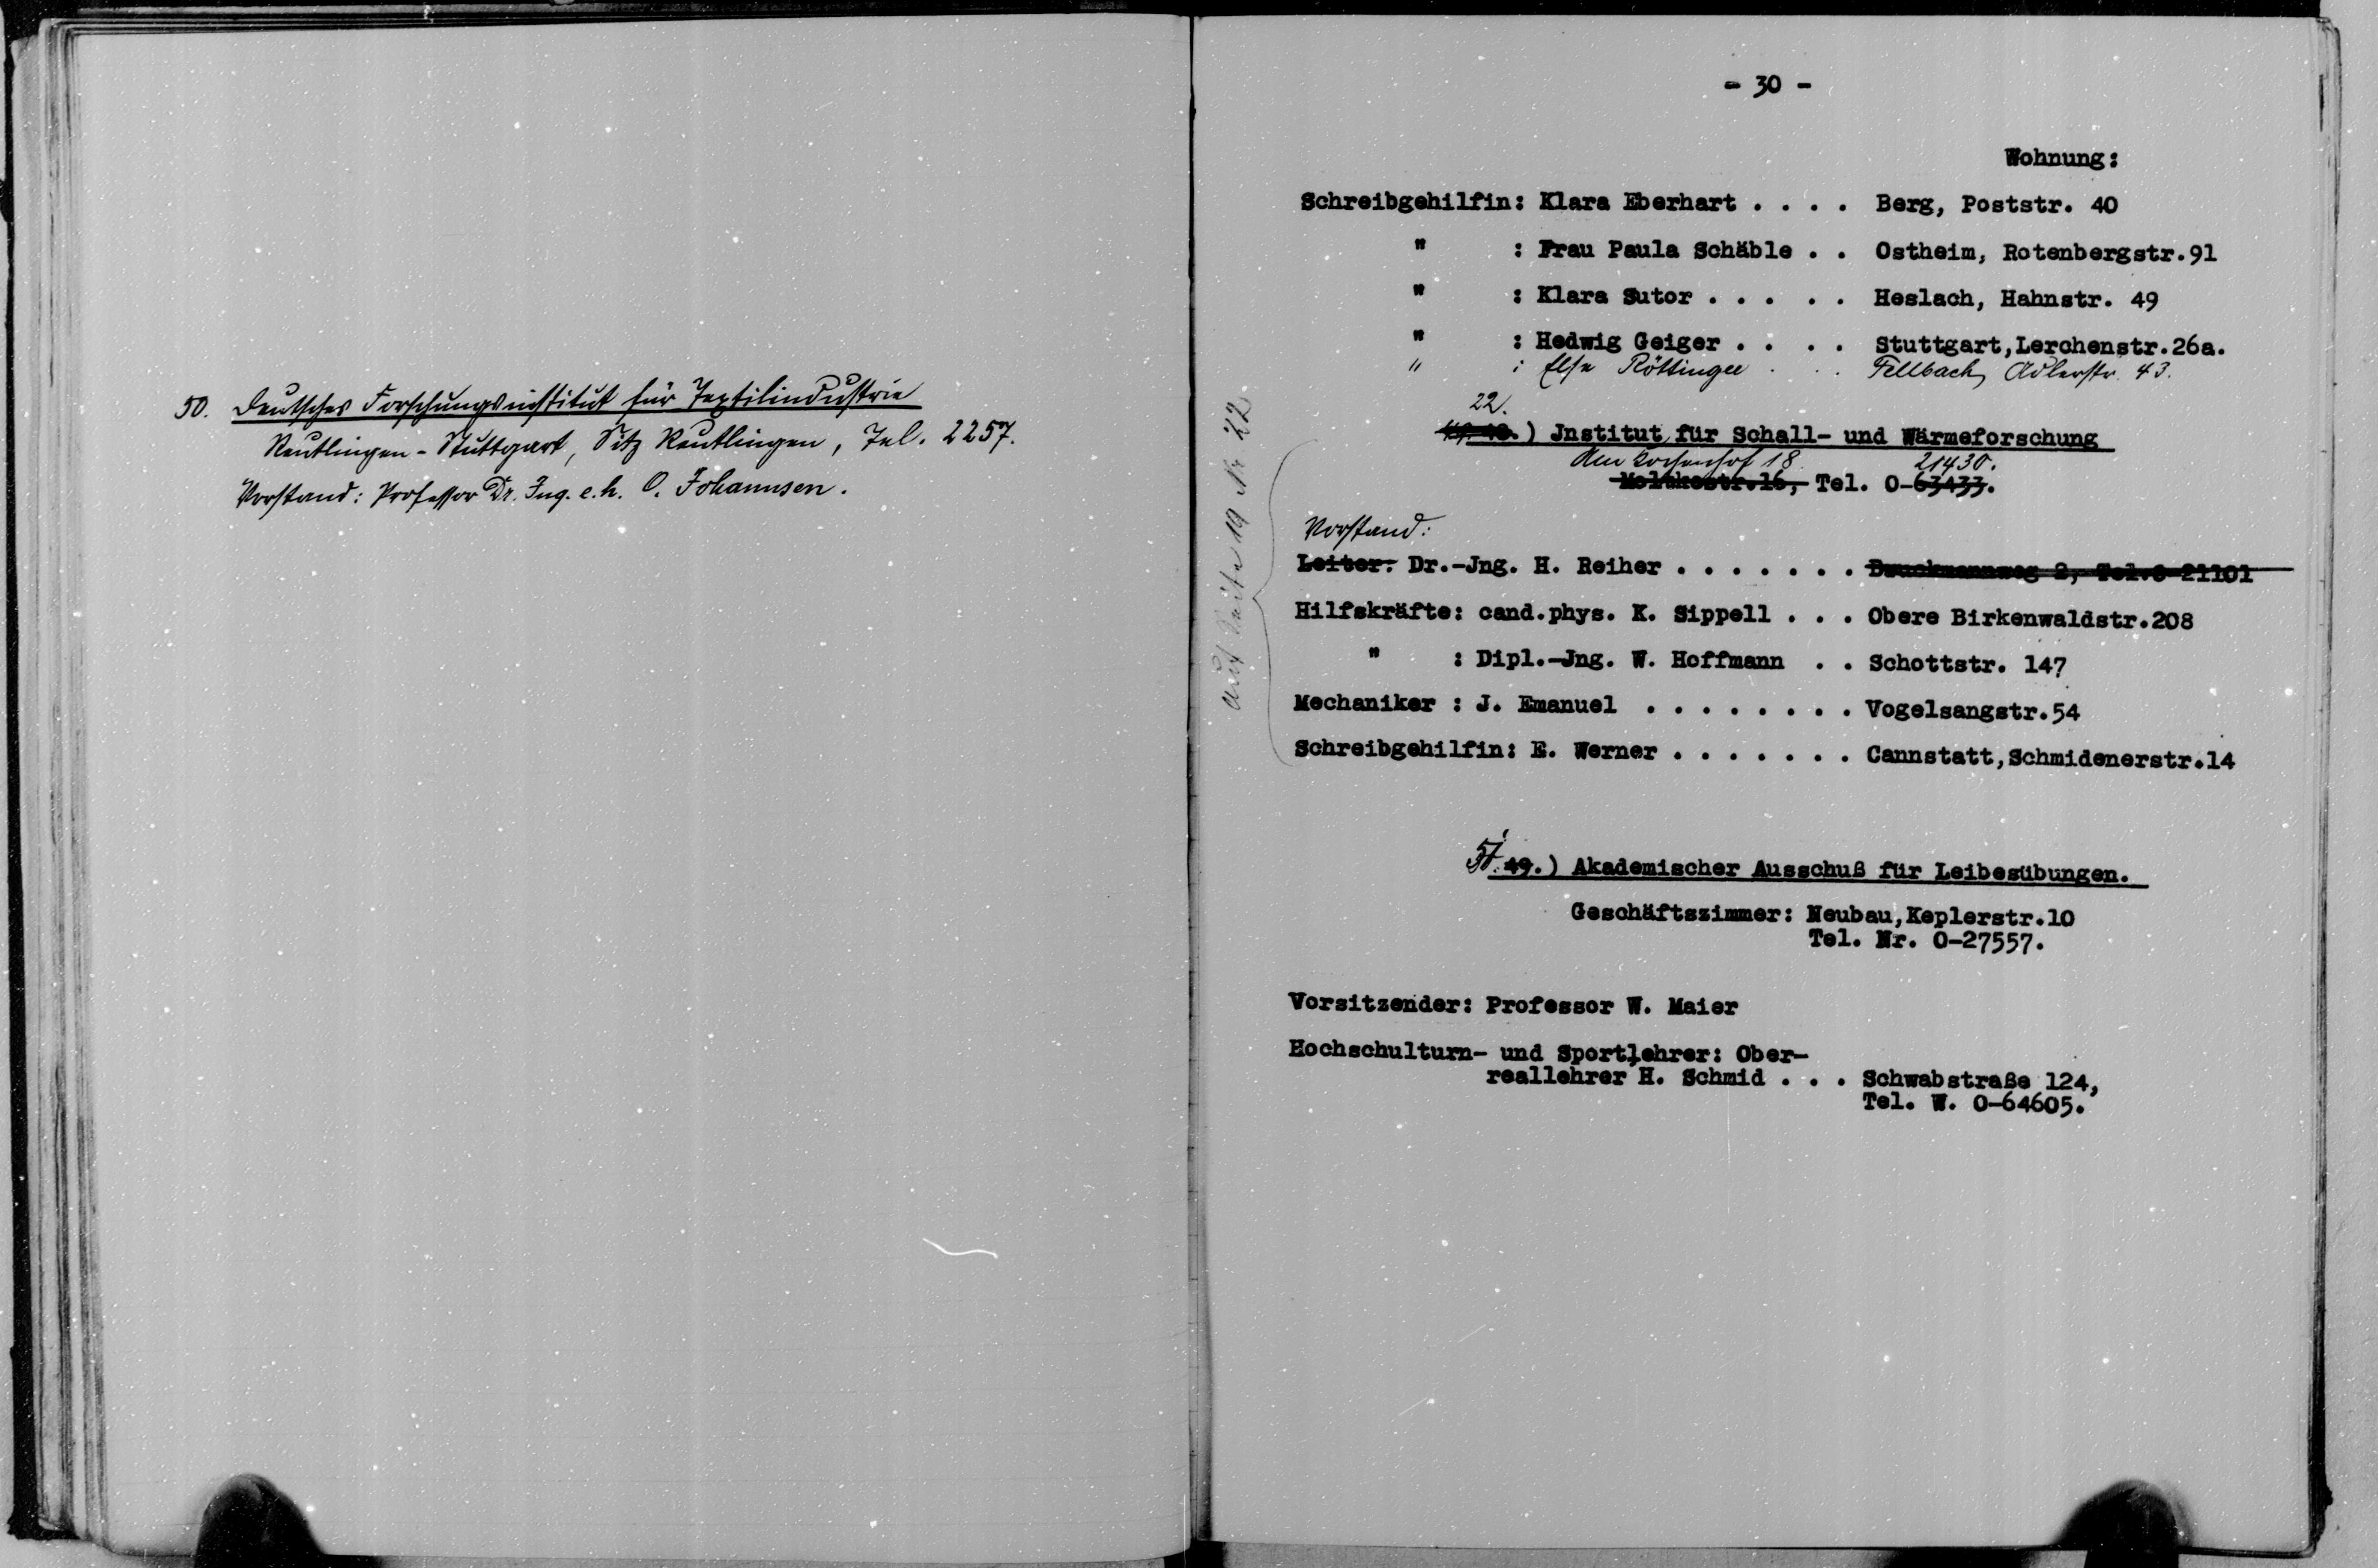 50. Deutsches Forschungsinstitut für Textilindustrie
Reutlingen-Stuttgart, Sitz Reutlingen, Tel. 2257.
Vorstand: Professor Dr. Ing. e.h. O. Johannsen.
- 30 -
Wohnung:
Schreibgehilfin: Klara Eberhart . . . . Berg, Poststr. 40
" : Frau Paula Schäble . . Ostheim, Rotenbergstr.91
" : Klara Sutor . . . . . Heslach, Hahnstr. 49
" : Hedwig Geiger . . . . Stuttgart,Lerchenstr.26a.
" : Else Röttinger . . . Fellbach, Adlerstr. 43.
22.
49. 48.) Jnstitut für Schall- und Wärmeforschung
Am Kochenhof 18 21430.
Moltkestr.16, Tel. 0-63433.
Auf Seite 19 Nr 22
Vorstand:
Leiter: Dr.-Jng. H. Reiher . . . . . . . Bruckmannweg 2, Tel.0-21101
Hilfskräfte: cand.phys. K. Sippell . . . Obere Birkenwaldstr.208
" : Dipl.-Jng. W. Hoffmann . . Schottstr. 147
Mechaniker : J. Emanuel . . . . . . . . Vogelsangstr.54
Schreibgehilfin: E. Werner . . . . . . . Cannstatt,Schmidenerstr.14
51. 49.) Akademischer Ausschuß für Leibesübungen.
Geschäftszimmer: Neubau,Keplerstr.10
Tel. Nr. 0-27557.
Vorsitzender: Professor W. Maier
Hochschulturn- und Sportlehrer: Ober-
reallehrer H. Schmid . . . Schwabstraße 124,
Tel. W. 0-64605.